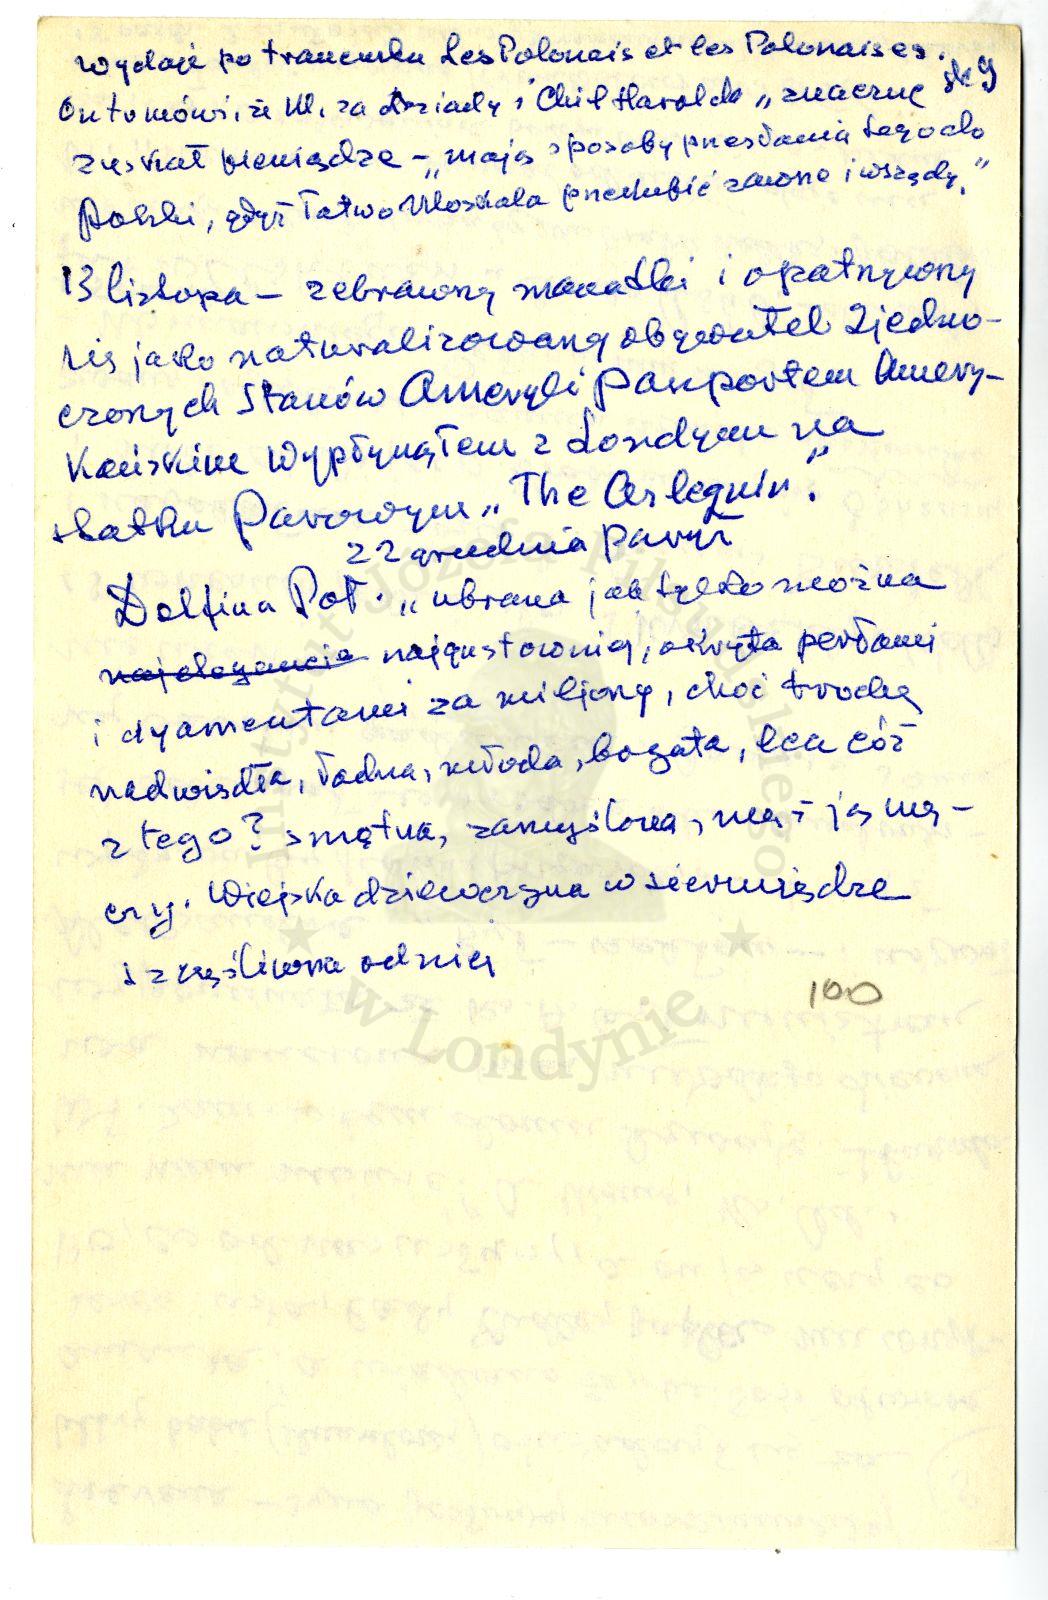 wydaje po francusku Les Polonais et les Polonaises.
On to mówi, że M. za Dziady i Child Harolda „znaczne
zyskał pieniądze – „mają sposoby przesłania tego do
Polski, gdyż łatwo Moskala przekupić zawsze i wszędy."
13 listopa – zebrawszy manatki i opatrzywszy
się jako naturalizowany obywatel Zjedno-
czonych Stanów Ameryki paszportem Amery-
kańskim wypłynąłem z Londynu na
statku parowym „The Arlequin."
22 grudnia Paryż
Delfina Pot. „ubrana jak tylko można
najelegancie najgustowniej, okryta perłami
i dyamentami za miljony, choć trochę
nadwiędła, ładna, młoda, bogata, lecz cóż
z tego? smętna, zamyślona, mąż ją mę-
czy. Wiejska dziewczyna w siermiędze
szczęśliwsza od niej
100
Instytut Józefa Piłsudskiego
w Londynie